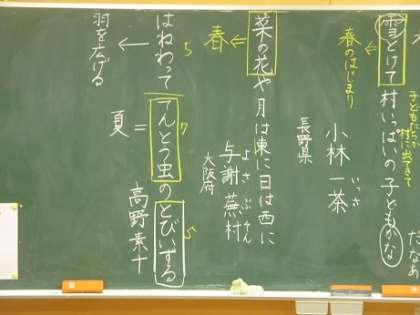 雪とけて村いっぱいの子どもかな
子どもたちが
だなあ
春のはじまり
小林一茶
いっさ
長野県
菜の花や月は東に日は西に
春
与謝蕪村
よさぶそん
大阪府
はねわっててんとう虫のとびいずる
5
7
5
羽を広げる
夏
高野素十